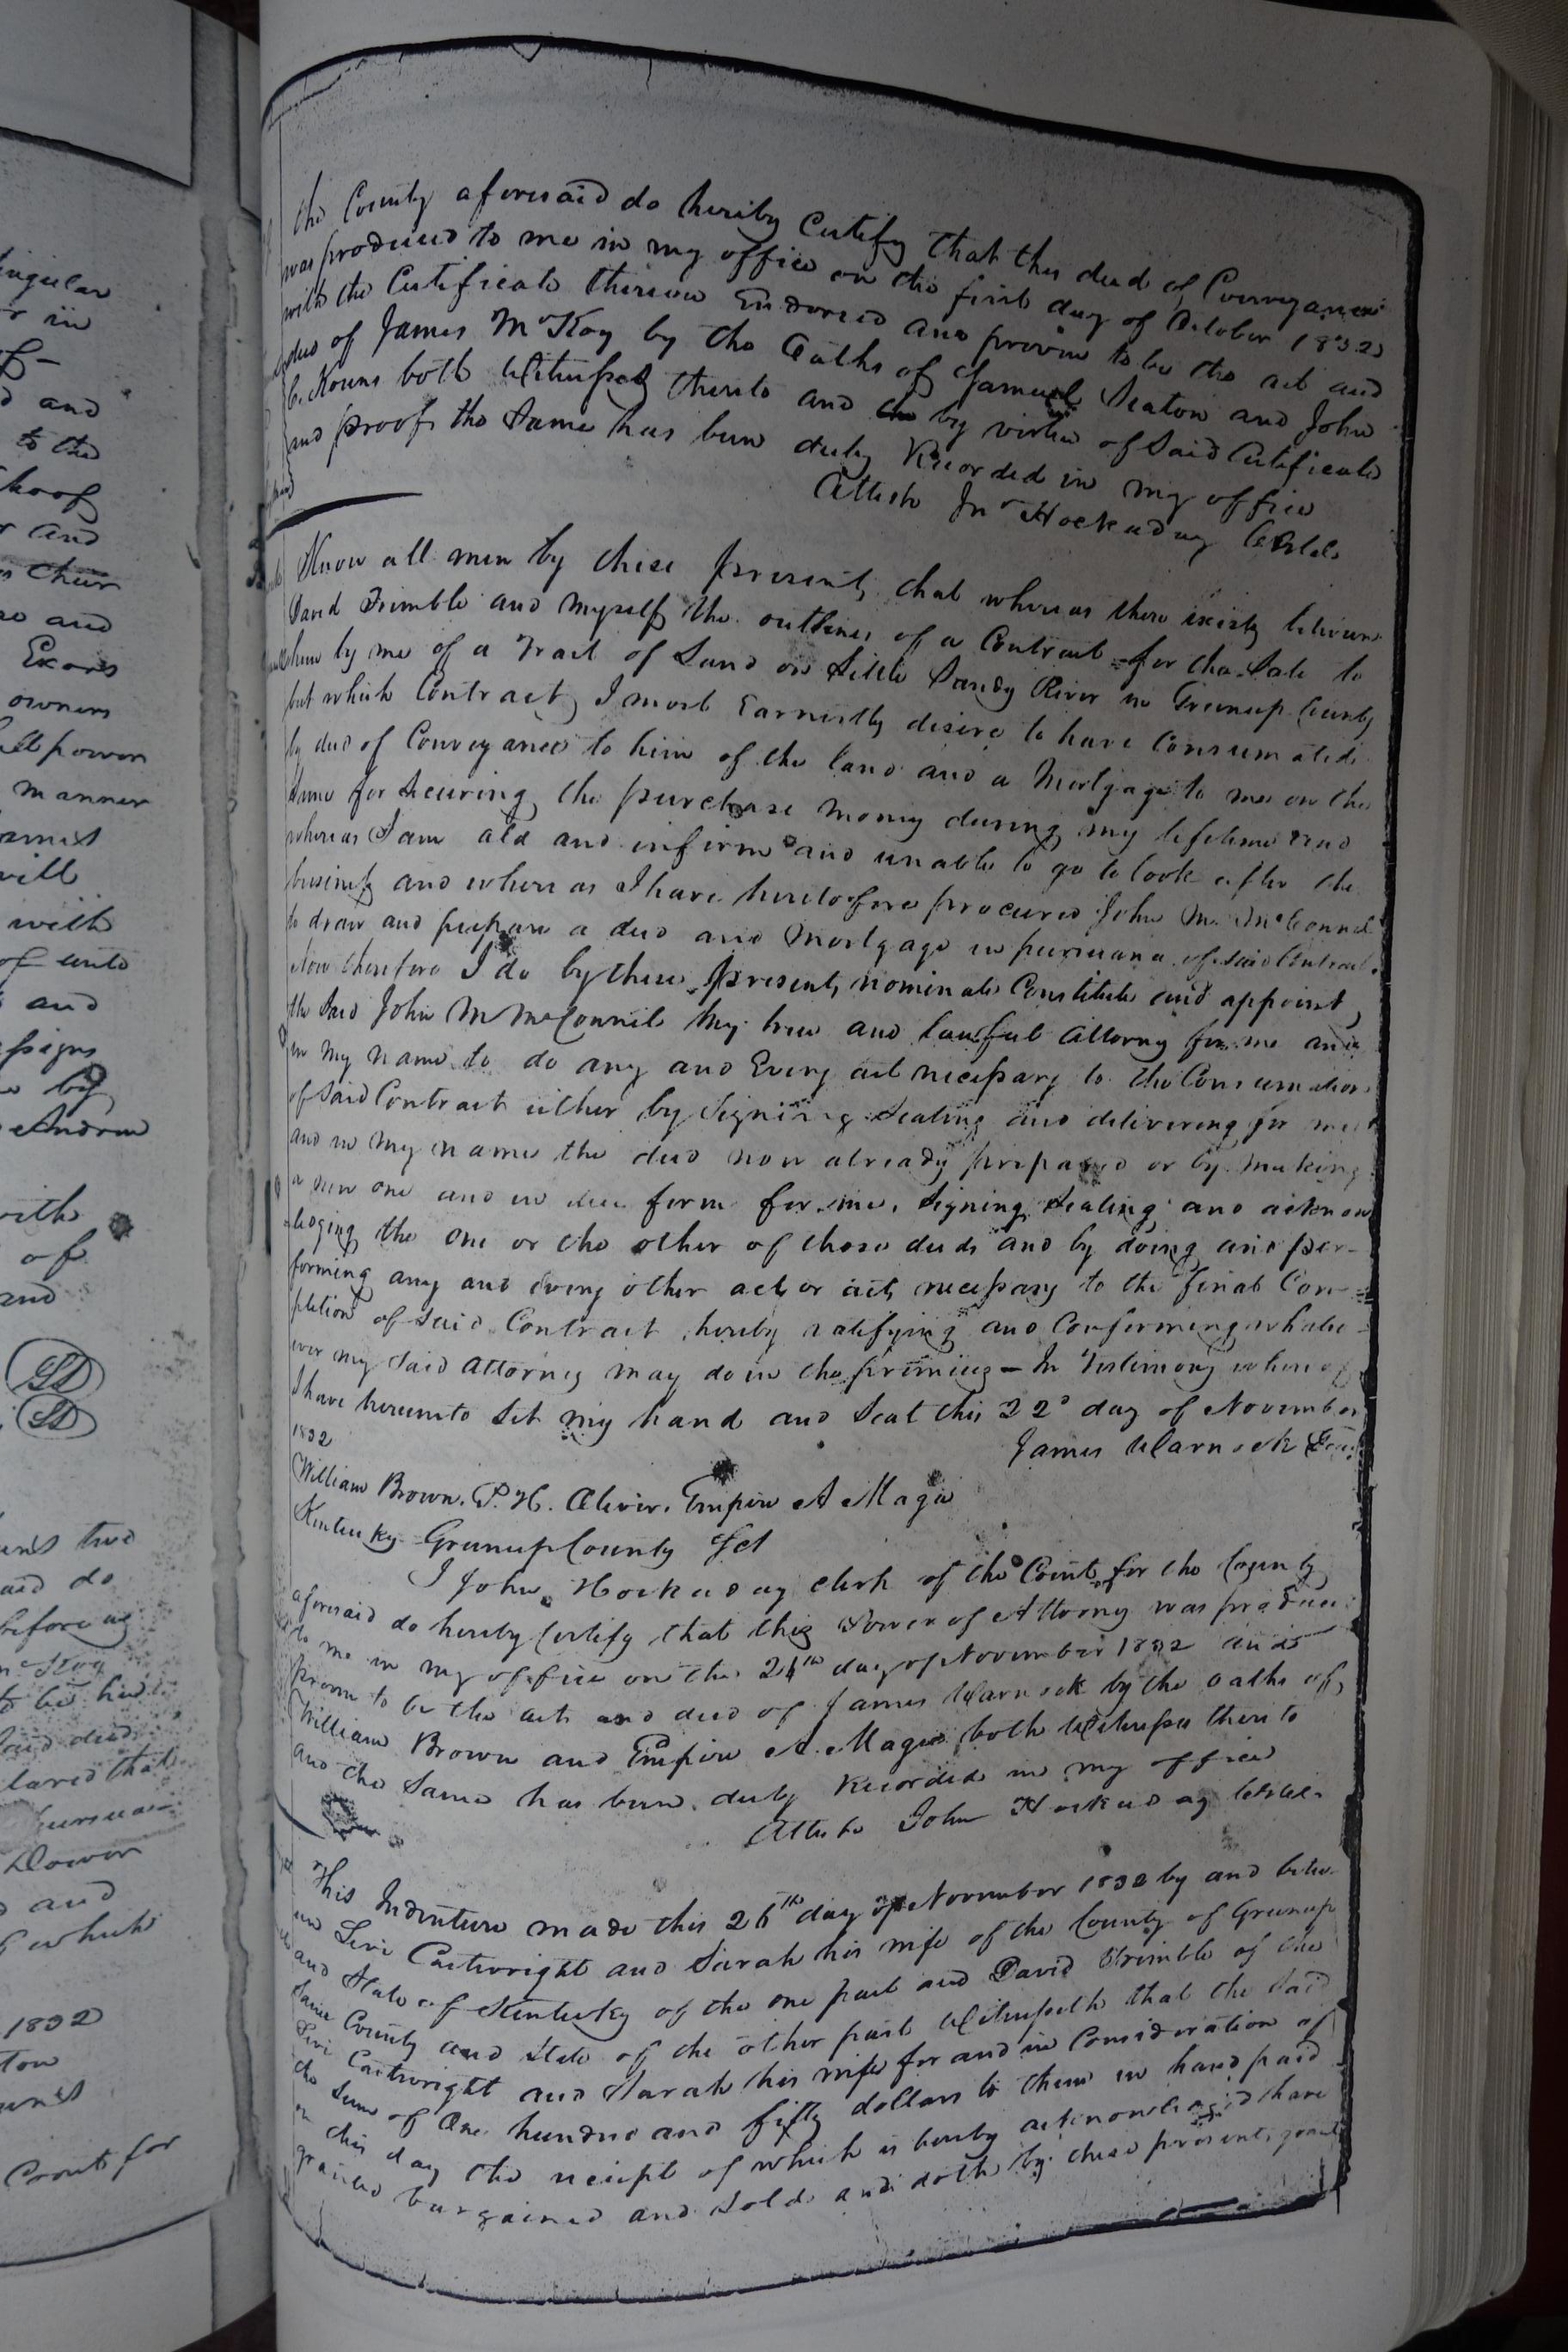 ingular
r in
of-
d and
to the
hoof
r and
n their
so and
Exors
owners
ll power
manner
amist
will
with
of unto
s and
ssigns
by
Andrew
with
of
and
SD
SD
two
aid do
before us
to be her
said deed
lared that
pursuan
Dower
and
which
1832
ton
Court for
the County aforesaid do hereby Certify that this deed of Conveyance
was produced to me in my office on the first day of October 1832
with the Certificate thereon Endorsed and proven to be the act and
deed of James McKoy by the Oaths of Samuel Seaton and John
C. Kouns both Witnesses thereto and by virtue of Said Certificate
and proof the Same has been duly Recorded in my office
Attest Jno Hockaday
Know all men by these presents that whereas there exists between
David Trimble and myself the outlines of a Contract for the Sale to
him by me of a Tract of Land on Little Sandy River in Greenup County
but which Contract I most Earnestly desire to have Consumated
by deed of Conveyance to him of the land and a Mortgage to me on the
Same for Securing the purchase money during my lifetime and
whereas I am old and infirm and unable to go to look after the
business and where as I have heretofore procured John M. McConnel
to draw and prepare a deed and Mortgage in pursuance of said Contract
Now therefore I do by these presents nominate Constitute and appoint
the Said John M McConnel my true and lawful attorny for me and
in my name to do any and Every act necessary to the Consumation
of Said Contract either by Signing Sealing and delivering for me
and in my name the deed now already prepared or by making
a new one and in due form for me, Signing Sealing and acknow
ledging the one or the other of those deeds and by doing and per-
forming any and every other act or acts necessary to the final Com=
pletion of Said Contract hereby ratifying and Confirming whatso-
ever my Said attorney may do in the premises - In Testimony whereof
I have hereunto Set my hand and Seal this 22d day of November
1832
James Warnock Seal
William Brown. P. H. Oliver. Empire A Magee
Kentucky Greenup County Sct
I John Hockaday clerk of the Court for the County
aforesaid do hereby Certify that this Power of Attorny was produced
to me in my office on the 26th day of November 1832 and
proven to be the act and deed of James Warnock by the oaths of
William Brown and Empire A. Magee both Witnesses thereto
and the Same has been duly Recorded in my office
Atteste John Hockaday
This Indenture made this 26th day of November 1832 by and betwe-
en Levi Cartwright and Sarah his wife of the County of Greenup
and State of Kentucky of the one part and David Trimble of the
Same County and State of the other part Witnesseth that the Said
Levi Cartwright and Sarah his wife for and in Consideration of
the Sum of One hundred and fifty dollars to them in hand paid
on this day the receipt of which is hereby acknowledged have
granted bargained and Sold and doth by these presents grant